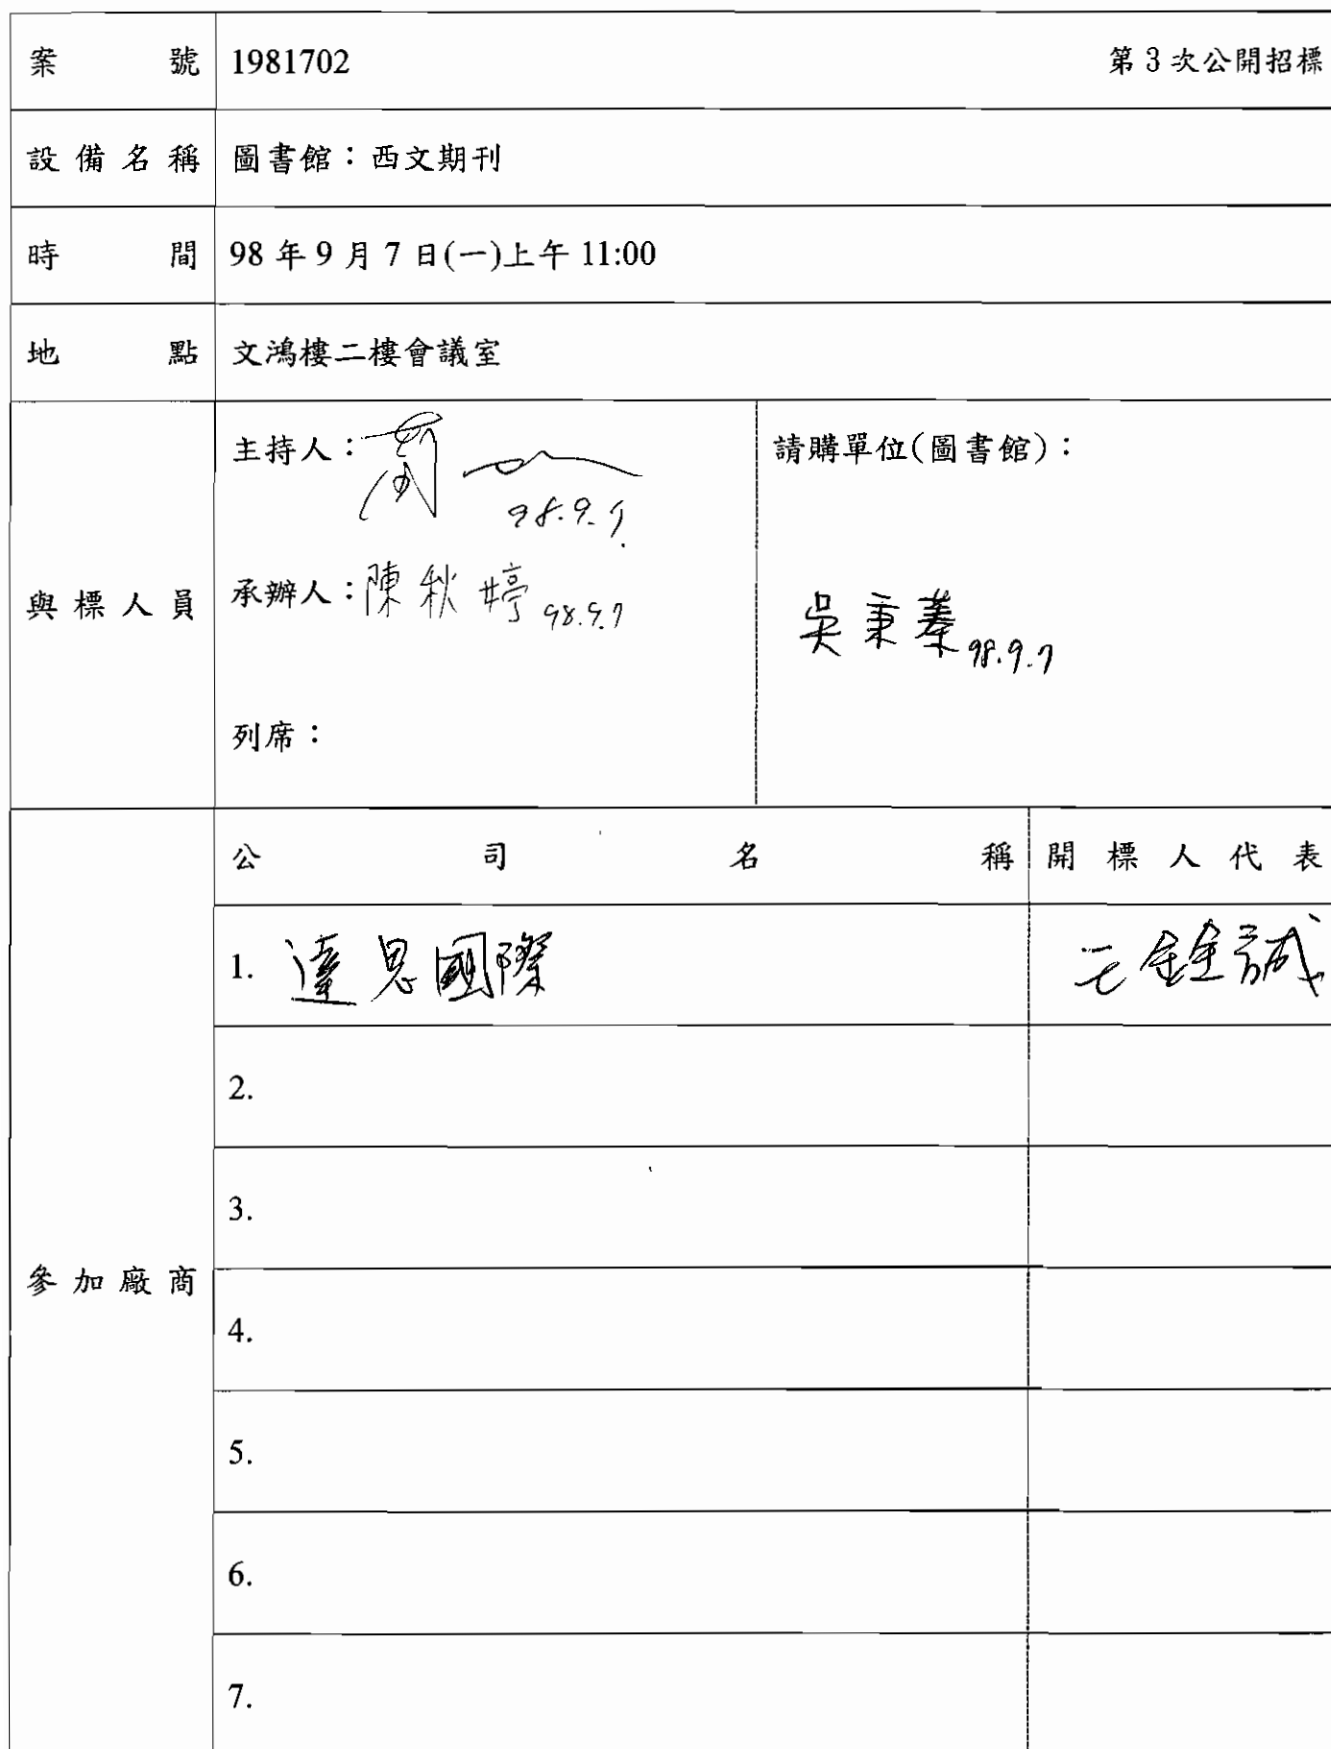 案號 1981702 第3次公開招標
設備名稱 圖書館：西文期刊
時間 98年9月7日(一)上午11:00
地點 文鴻樓二樓會議室
與標人員
主持人： 98.9.7.
承辦人：陳秋婷 98.9.7
列席：
請購單位(圖書館)：
吳秉蓁 98.9.7
參加廠商
公司名稱 開標人代表
1. 達思國際
2.
3.
4.
5.
6.
7.